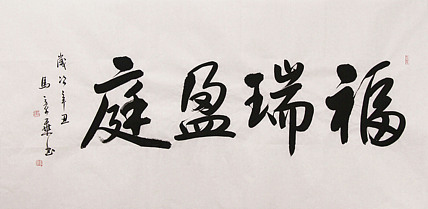 福瑞盈庭
歲次辛丑
馬